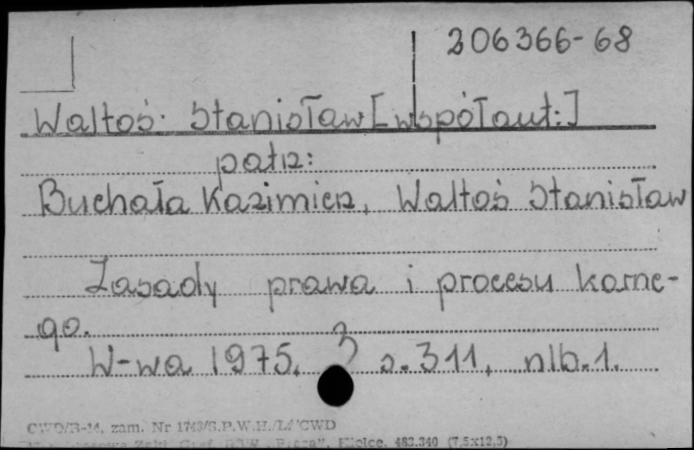 206366-68
Waltoś Stanisław [współaut.:]
patrz:
Buchała Kazimierz, Waltoś Stanisław
Zasady prawa i procesu karne-
go.
W-wa 1975. s. 311, nlb. 1.
CWD/B-14, zam. Nr S.P.W.H./Lł/CWD
Kielce. 483.340 (7,5x12,5)